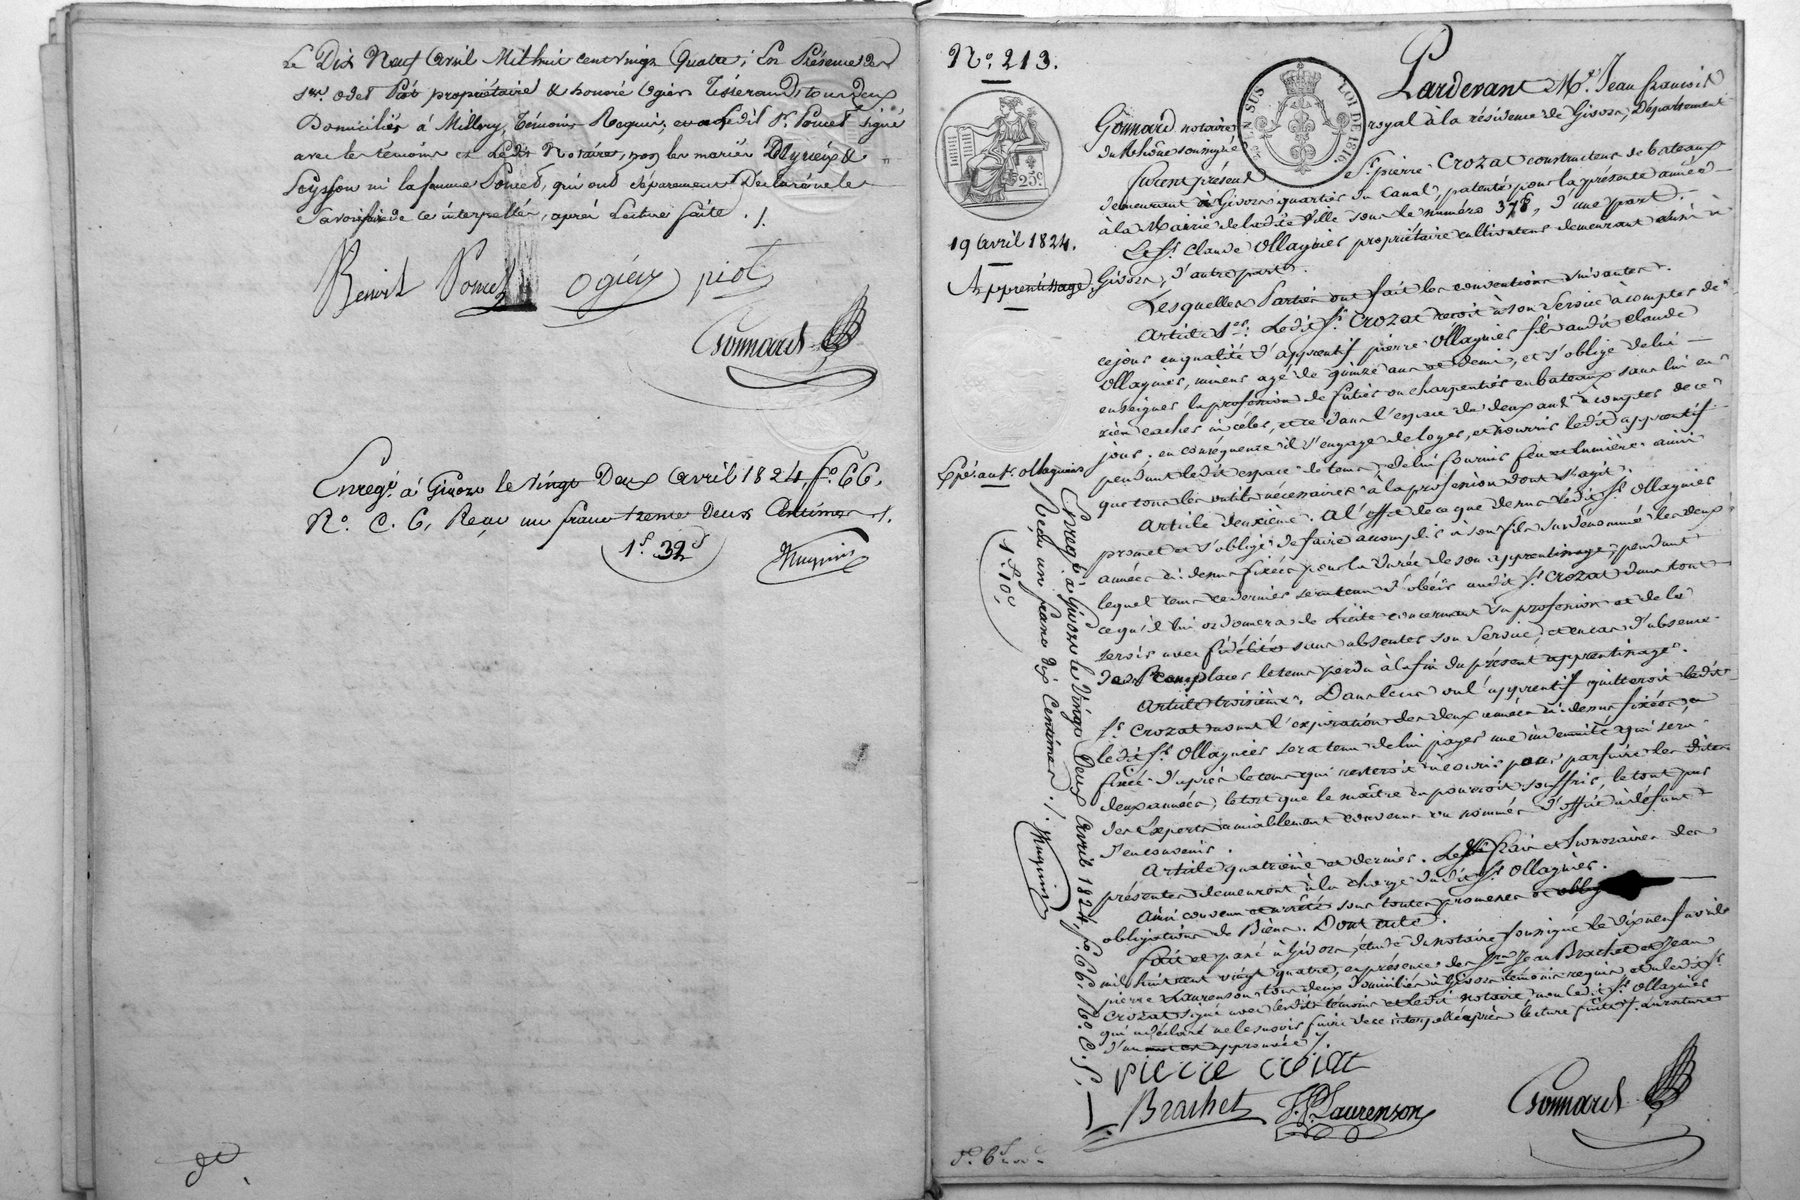 Le Dix Neuf Avril Mil huit cent vingt Quatre; En Présence des
srs. odet Piot propriétaire & honoré Ogier Tisserand tous deux
Domiciliés à Millery, Témoins Requis, et a Ledit Sr. Poncet signé
avec les témoins et Ledit Notaire, non les mariés &
Seysson ni la femme Poncet, qui ont séparément Déclaré ne le
savoir de ce interpellés, après Lecture faite ./.
Benoit Poncet ogier piot
Gonnard
Enregé. à Givors le vingt Deux Avril 1824, fo. 66,
Ro. C. 6, Reçu un franc trente Deux Centimes ./.
1f. 32c
N°. 213.
Pardevant Me. Jean francois
EN SUS LOI DE 1816
25c
Gonnard notaire royal à la résidence de Givors, Département
du Rhône soussigné
furent présent Sr. pierre Crozat constructeur de bateaux
demeurant à Givors quartier du Canal, patenté pour la présente année
à la Mairie de ladite Ville sous le numéro 378, d'une part.
19 avril 1824.
Et Sr. Claude Ollagnier propriétaire cultivateur demeurant aussi à
Apprentissage
Givors, d'autre part.
Lesquelles Parties ont fait les conventions suivantes.
Article 1er. Ledit Sr. Crozat reçoit à son Service à compter de
ce jour en qualité d'apprentif pierre Ollagnier fils audit Claude
Ollagnier, mineur agé de quinze ans et demi, et s'oblige de lui
enseigner la profession de futier ou charpentier en bateaux sans lui en
rien cacher ni céler, et ce dans l'espace de deux ans à compter de ce
jour. en conséquence il s'engage de loger, et nourrir ledit apprentif
Expé. au Sr. ollagnier
pendant ledit espace de tems, de lui fournir feu et lumière ainsi
que tous les outils nécessaires à la profession dont s'agit.
Article deuxième. A l'effet de ce que dessus ledit Sr. Ollagnier
promet et s'oblige de faire accomplir à son fils susdénommé les deux
années ci-dessus fixées pour la durée de son apprentissage, pendant
lequel tems ce dernier sera tenu d'obéir audit Sr. Crozat dans tout
ce qu'il lui ordonnera de Licite concernant sa profession et de le
servir avec fidélité sans absenter son Service, et en cas d'absence
de Remplacer le tems perdu à la fin du présent apprentissage.
Article troisième. Dans le cas où l'apprentif quitteroit ledit
Sr. Crozat avant l'expiration des deux années ci-dessus fixées
ledit Sr. Ollagnier sera tenu de lui payer une indemnité qui sera
fixée d'après le tems qui resteroit à courir pour parfaire les dites
deux années, le tort que le maître en pourroit souffrir, le tout par
des Experts amiablement convenus ou nommés d'office à défaut
d'en convenir.
Article quatrième et dernier. Les frais et honoraires des
présentes demeurent à la charge dudit Sr. Ollagnier.
Ainsi convenu et arrêté sous toutes promesses et
obligations de Biens. Dont acte.
fait et passé à Givors, étude du notaire soussigné le dix neuf avril
mil huit cent vingt quatre, en présence des Srs. Jean Brachet et Jean
pierre Laurenson tous deux domiciliés à Givors témoins requis et a ledit Sr.
Crozat signé avec lesdits témoins et ledit notaire non ledit Sr. Ollagnier
qui a déclaré ne le savoir faire de ce interpellé après lecture faite
d'un mot est approuvée ./.
pierre crozat
Brachet J. P. Laurenson
Gonnard
Enregé. à Givors le Vingt Deux Avril 1824, fo. 66. Ro. C. 5,
Reçu un franc dix Centimes ./.
1f. 10c.